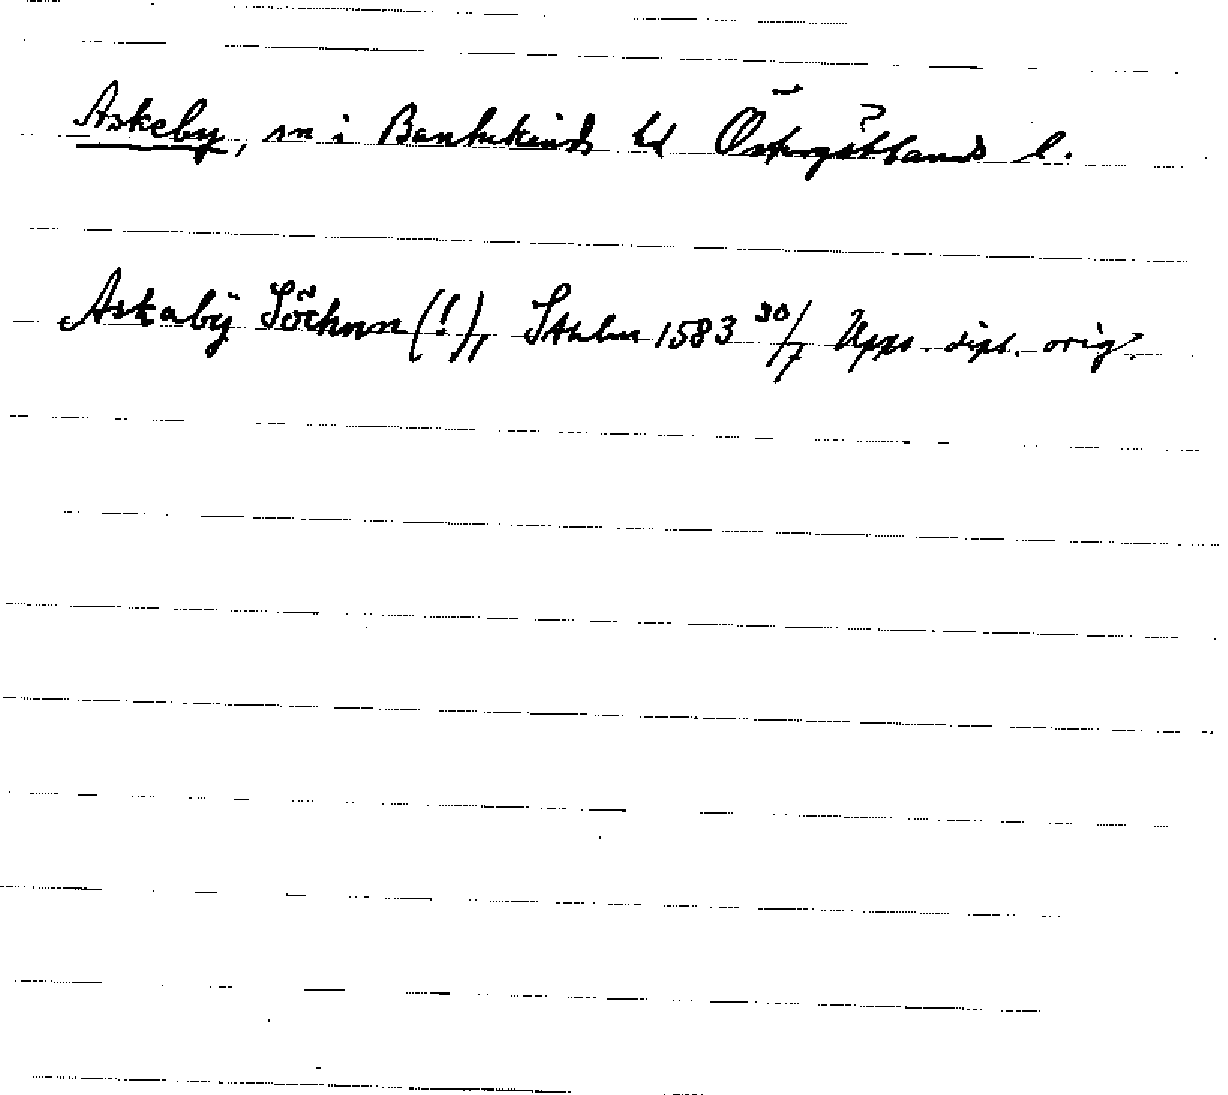 Askeby, sn i Bankekinds hd Östergötlands l.
Askabÿ Söchnn (!), Sthlm 1583 30/7 Upps. dipl. orig.